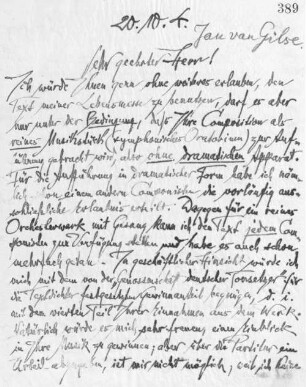 389
20.10.4.
Jan van Gilse
Sehr geehrter Herr!
Ich würde Ihnen gern ohne weiteres erlauben, den
Text meiner Lebensmesse zu benutzen, darf es aber
nur unter der Bedingung, daß Ihre Composition als
reines Musikstück (symphonisches Oratorium) zur Auf-
führung gebracht wird, also ohne dramatischen Apparat.
Für die Aufführung in dramatischer Form habe ich näm-
lich einem andern Componisten die vorläufig aus-
schließliche Erlaubnis erteilt. Dagegen für ein reines
Orchesterwerk mit Gesang kann ich den Text jedem Com-
ponisten zur Verfügung stellen und habe es auch schon
mehrfach getan. In geschäftlicher Hinsicht würde ich
mich mit dem von der Genossenschaft deutscher Tonsetzer für
die Textdichter festgesetzten Gewinnanteil begnügen, d. i.
mit dem vierten Teil Ihrer Einnahmen aus dem Werk.
Natürlich würde es mich sehr freuen, einen Einblick
in Ihre Musik zu gewinnen; aber über die Partitur ein
Urteil abzugeben, ist mir nicht möglich, weil ich keine